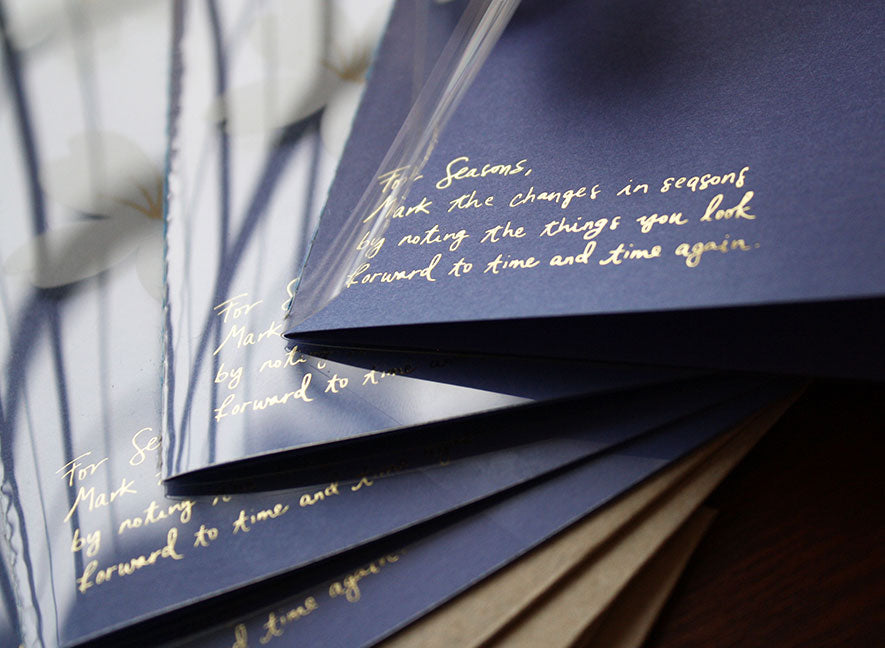 For Seasons,
Mark the changes in seasons
by noting the things you look
forward to time and time again.
For S
Mark
by noti
forward to time an
For Se
Mark
by noting
forward to time and time
d to time and time again.